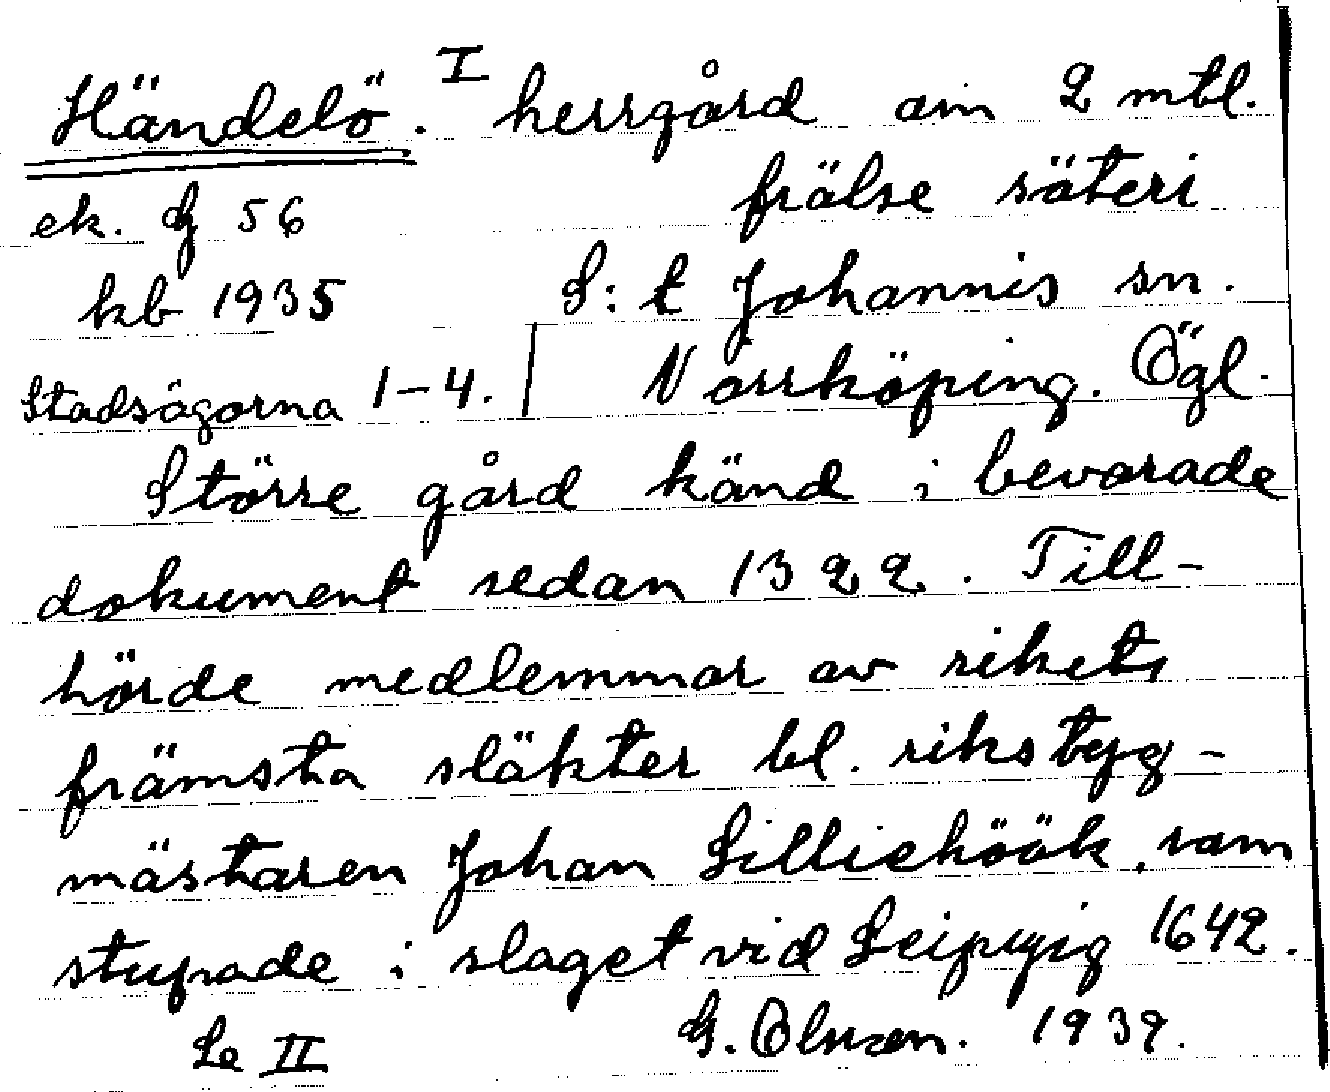 Händelö. I herrgård om 2 mtl.
frälse säteri
ek. G 56
kb 1935
S:t Johannis sn.
Stadsägorna 1-4. | Norrköping. Ögl.
Större gård känd i bevarade
dokument sedan 1322. Till-
hörde medlemmar av rikets
främsta släkter bl. rikstyg-
mästaren Johan Lilliehöök, som
stupade i slaget vid Leipzig 1642.
Se II
G. 1939.